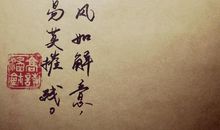 风如解意，
易莫摧残。